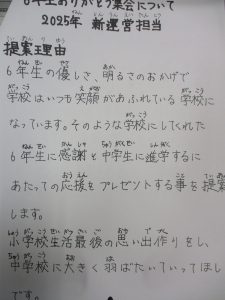 6年生ありがとう集会について
2025年 新運営担当
提案理由
6年生の優しさ、明るさのおかげで
学校はいつも笑顔があふれている学校に
なっています。そのような学校にしてくれた
6年生に感謝と中学生に進学するに
あたっての応援をプレゼントする事を提案
します。
小学校生活最後の思い出作りをし、
中学校に大きく羽ばたいていってほし
です。